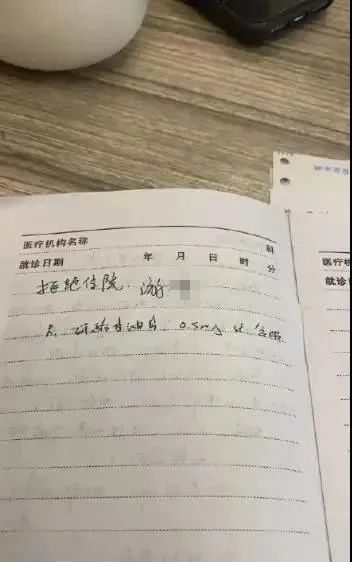 医疗机构名称 科
就诊日期 年 月 日 时 分
拒绝住院. 游
硝酸甘油片 0.5mg 含服
医疗机
就诊日